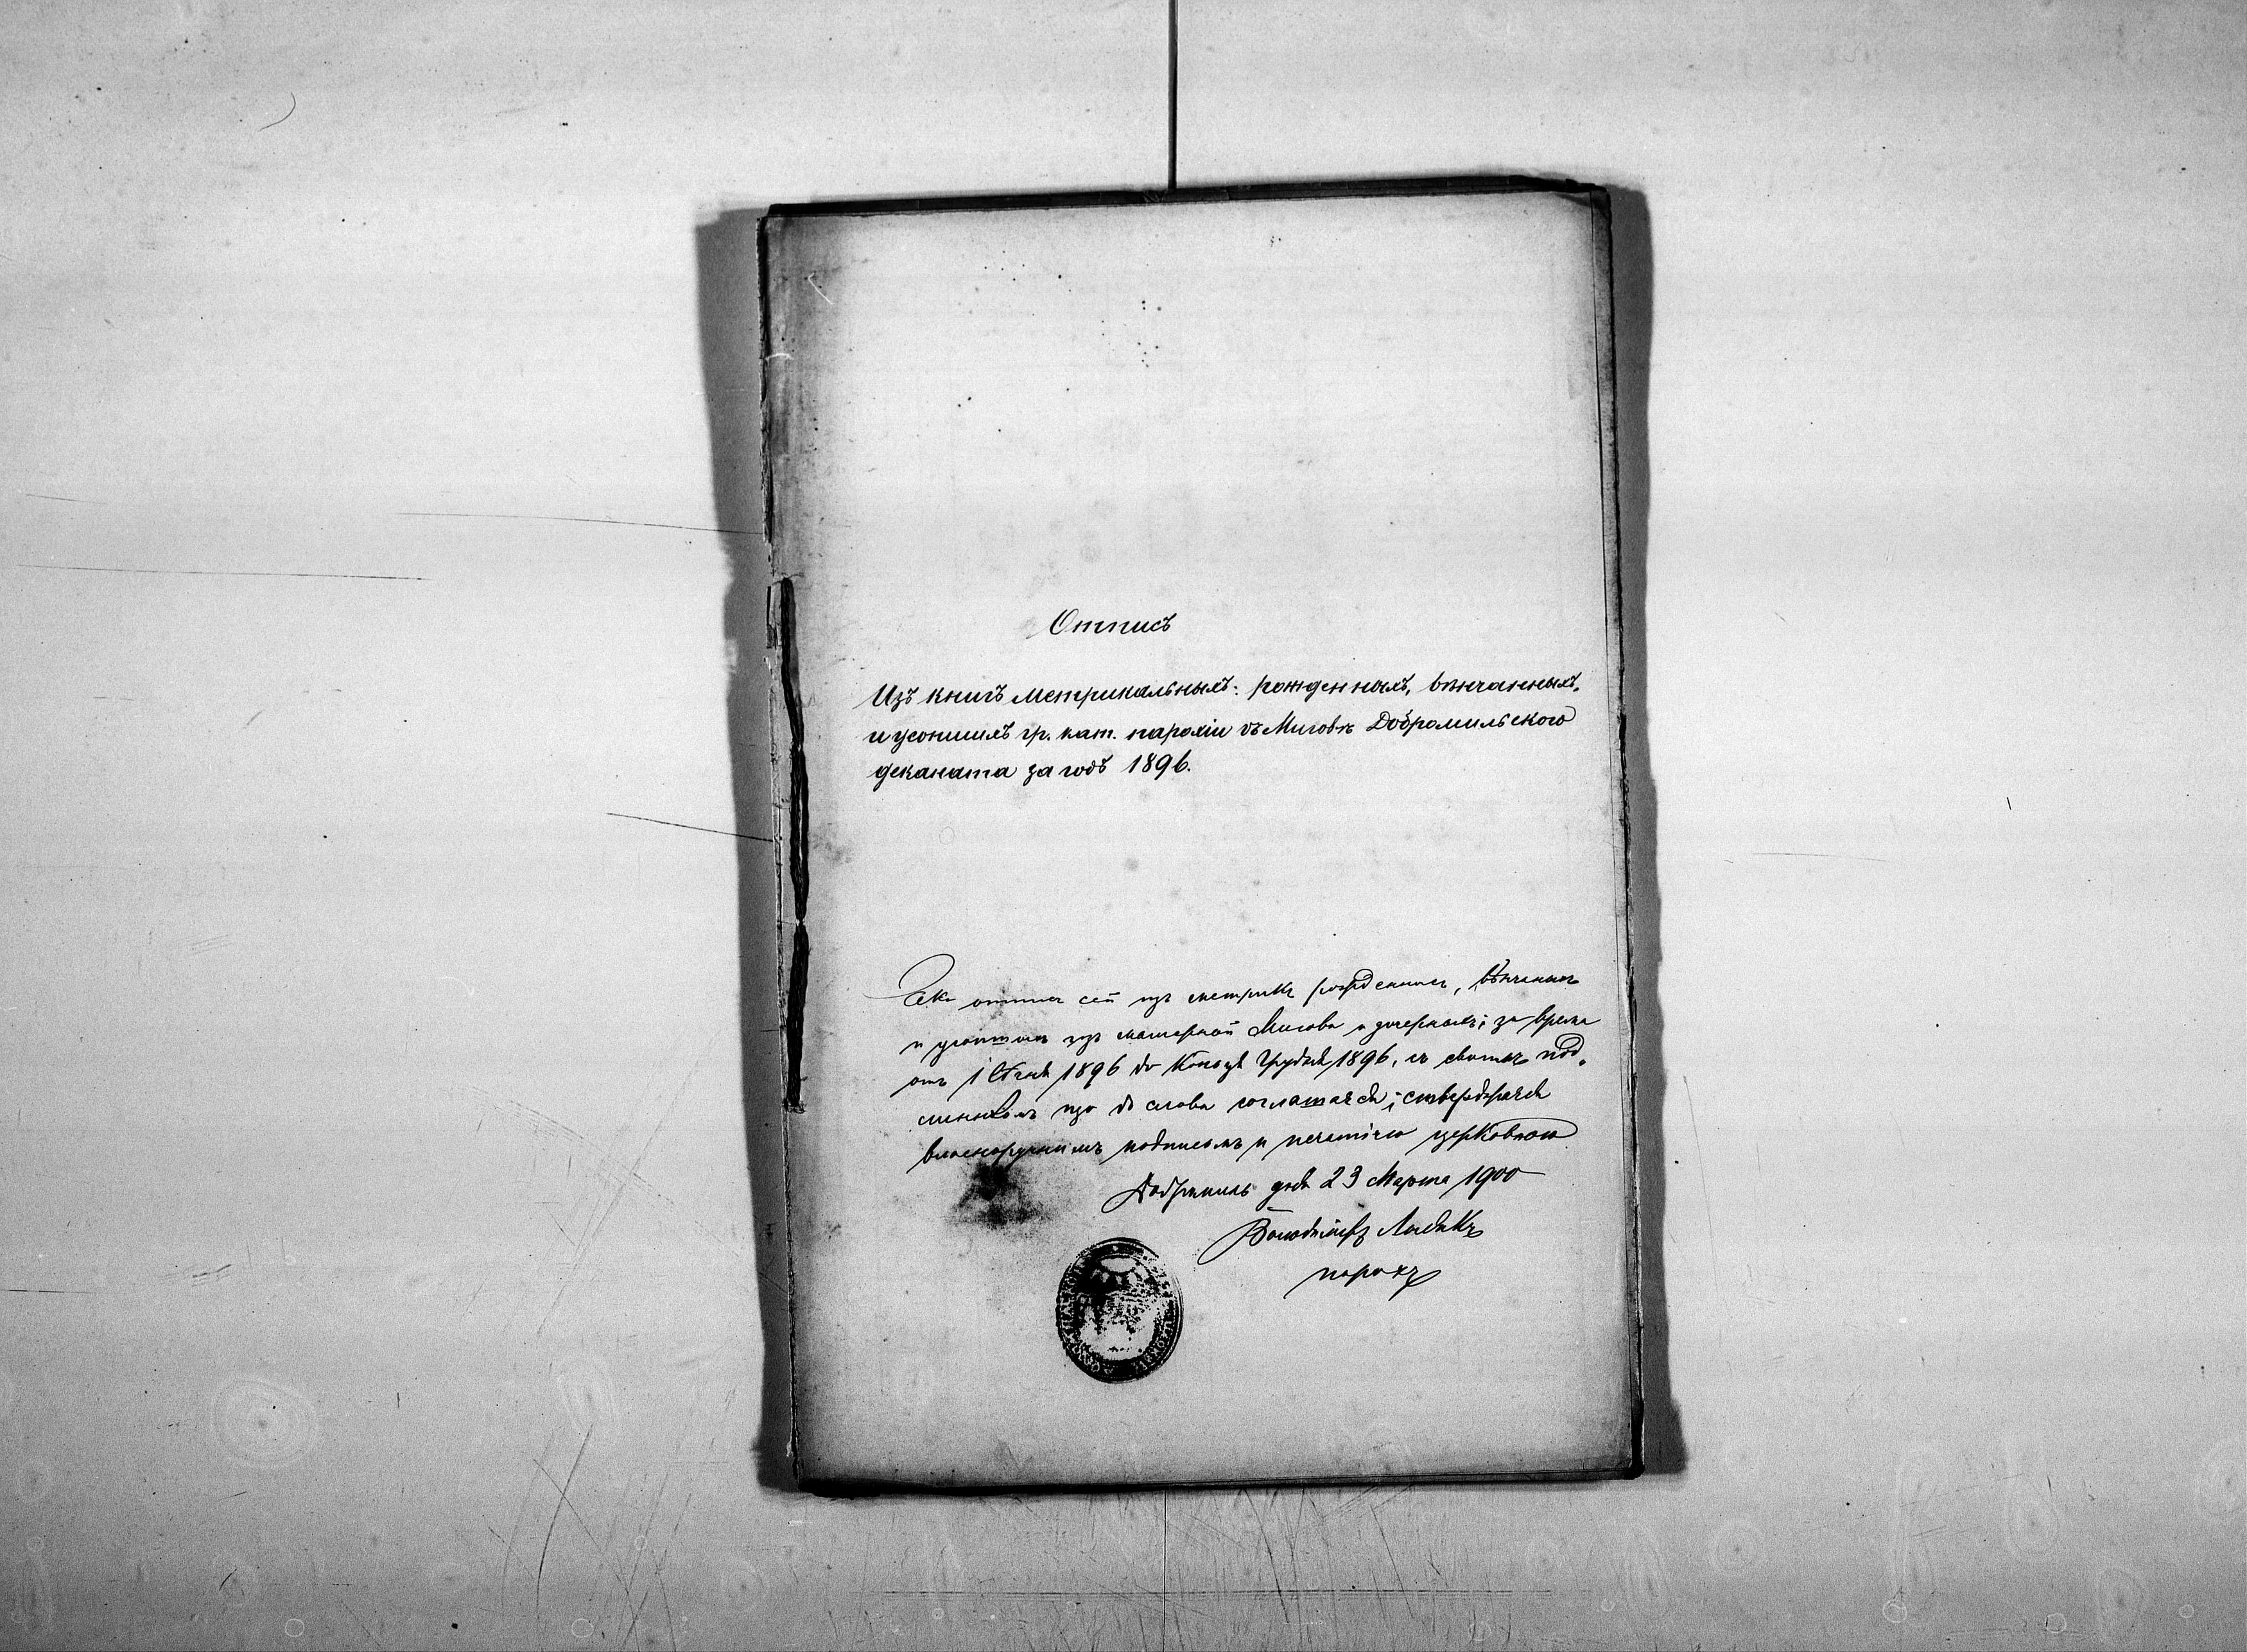 Отпись
Изъ книгъ метрикальныхъ: рожденныхъ, вѣнчанныхъ,
и усопшихъ гр. кат. парохіи въ Миговѣ Добромильского
деканата за годъ 1896.
отпись сей изъ метрикъ рожденныхъ, вѣнчаныхъ
и усопшихъ изъ матерной Мигова и дочерныхъ; за время
отъ 1 Стчня 1896 до конця Грудня 1896, съ своимъ под„
линникомъ що до слова соглашаеся, стверджаеся
власноручнимъ подписомъ и печатію церковною
Добромиль дня 23 Марта 1900
Володимір
парохъ